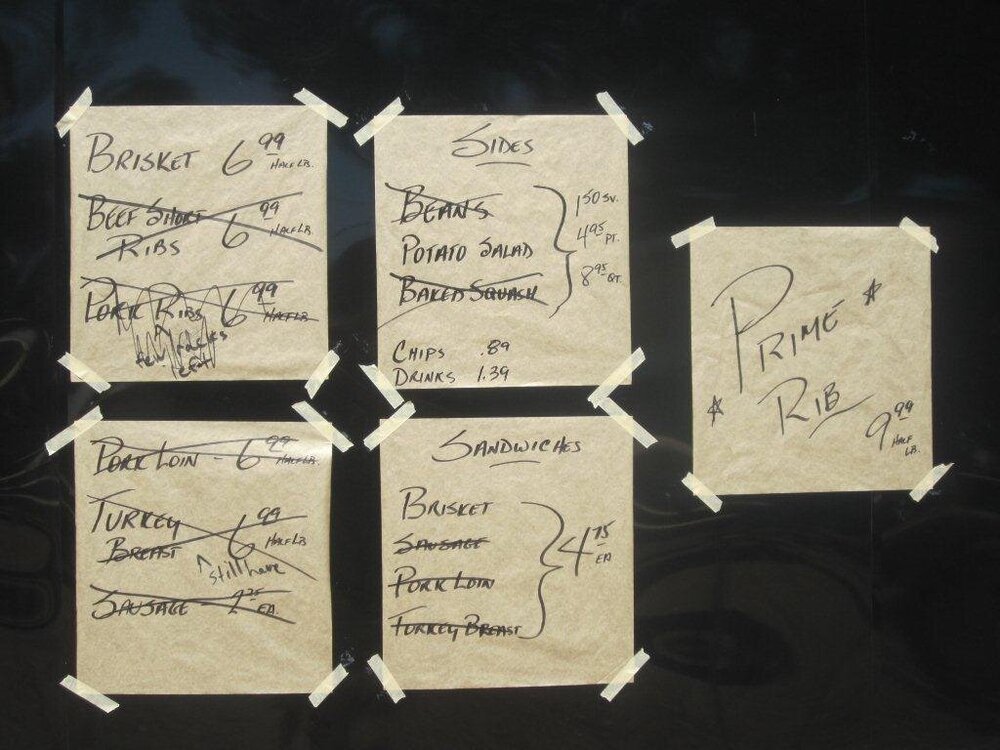 BRISKET 6 99 HALF LB.
BEEF SHORT
RIBS 6 99 HALF LB
PORK RIBS 6 99 HALF LB
few racks
left
SIDES
BEANS
POTATO SALAD
BAKED SQUASH
1 50 SV.
4 95 PT.
8 95 QT.
CHIPS .89
DRINKS 1.39
PRIME
RIB
9 99 HALF LB.
PORK LOIN - 6 99 HALF LB.
TURKEY
BREAST 6 99 HALF LB
still have
SAUSAGE - 2 25 EA.
SANDWICHES
BRISKET
SAUSAGE
PORK LOIN
TURKEY BREAST
4 75 EA